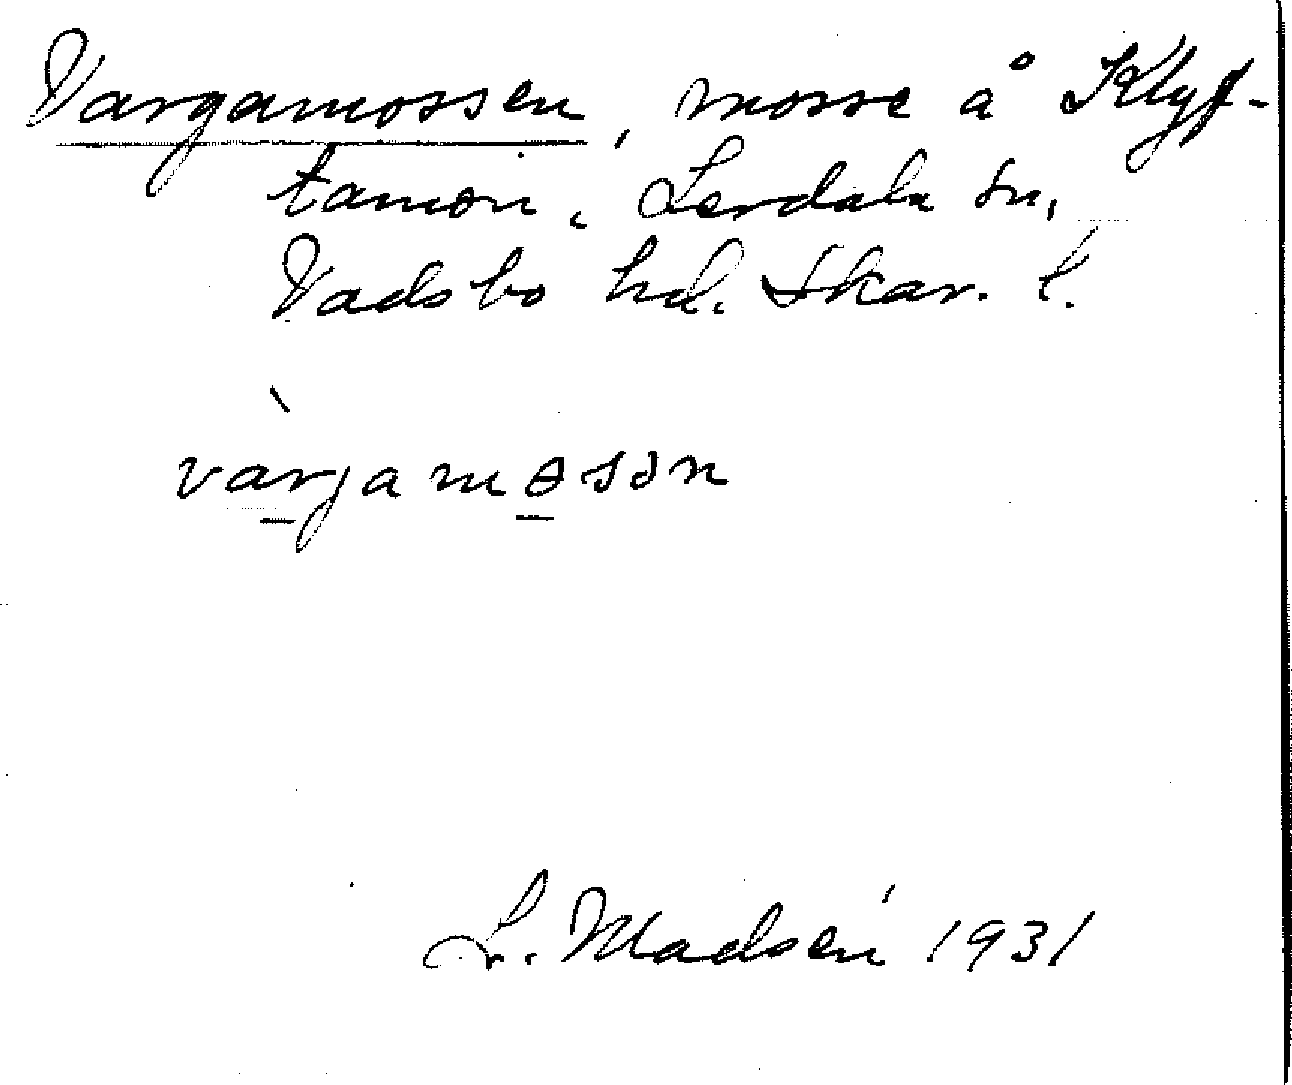 Vargamossen, mosse å Klyf-
tamon, Lerdala sn,
Vadsbo hd. Skar. l.
vàrjamɵsən
L. Madsén 1931